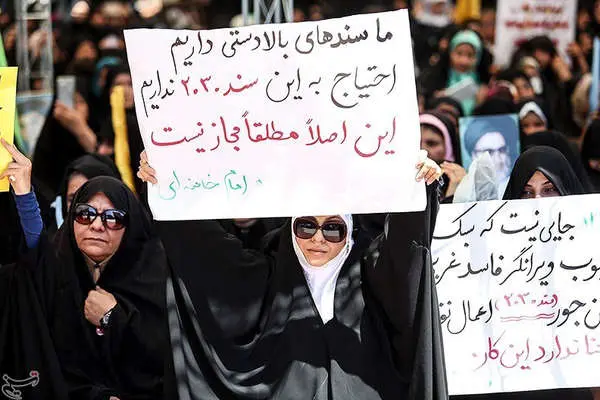 ما سندهای بالادستی داریم
احتیاج به این سند ۲۰۳۰ نداریم
این اصلاً مطلقاً مجاز نیست
امام خامنه‌ای
جایی نیست که سبک
ویرانگر فاسد غربی
(سند ۲۰۳۰) اعمال
ندارد این کار
تسنیم